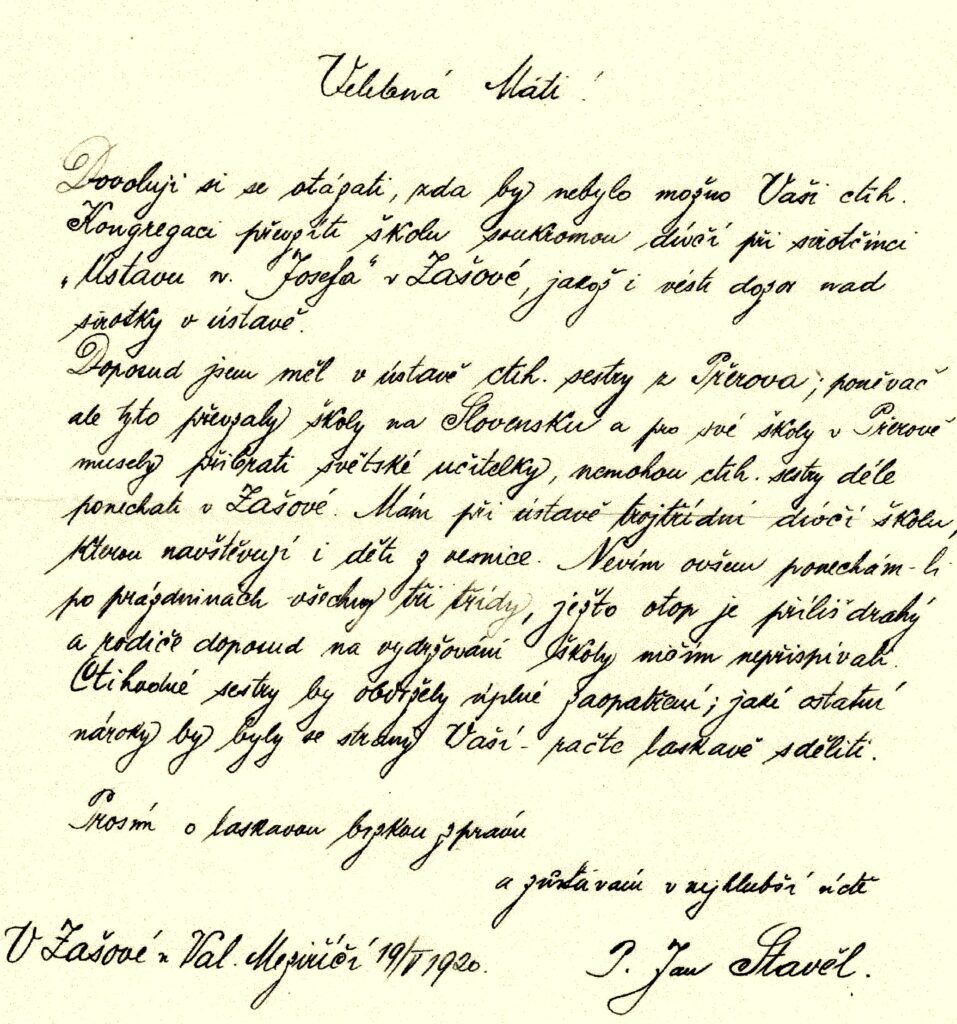 Velebná Máti!
Dovoluji si se otázati, zda by nebylo možno Vaši ctih.
Kongregaci převzíti školu soukromou dívčí při sirotčinci
„Ústavu sv. Josefa" v Zašové, jakož i vésti dozor nad
sirotky v ústavě.
Doposud jsem měl v ústavě ctih. sestry z Přerova; poněvač
ale tyto převzaly školy na Slovensku a pro své školy v Přerově
musely přibrati světské učitelky, nemohou ctih. sestry déle
ponechati v Zašové. Mám při ústavě trojtřídní dívčí školu,
kterou navštěvují i děti z vesnice. Nevím ovšem ponechám-li
po prázdninách všechny tři třídy, ježto otop je příliš drahý
a rodiče doposud na vydržování školy ničím nepřispívali.
Ctihodné sestry by obdržely úplné zaopatření; jaké ostatní
nároky by byly se strany Vaší - račte laskavě sděliti.
Prosím o laskavou brzkou zprávu
a zůstávám v nejhlubší úctě
V Zašové u Val. Meziříčí 19/V 1920.
P. Jan Stavěl.